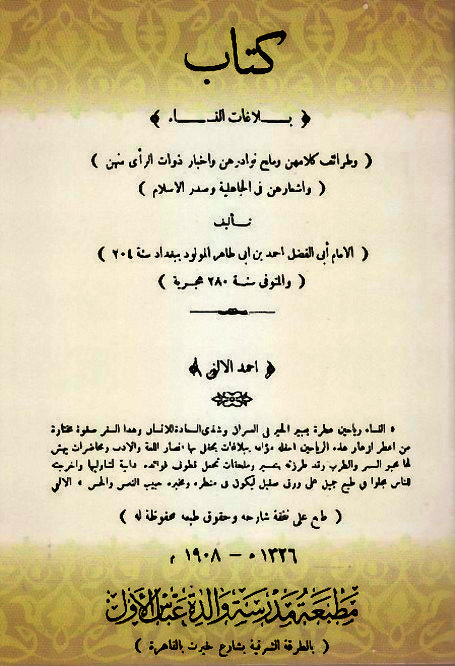 كتاب
﴿ بــلاغات النســاء ﴾
( وطرائف كلامهن وملح نوادرهن واخبار ذوات الرأى منهن )
( واشعارهن فى الجاهلية وصدر الاسلام )
تأليف
( الامام أبى الفضل احمد بن ابى طاهر المولود ببغداد سنة ٢٠٤ )
( والمتوفى سنة ٢٨٠ هجرية )
﴿ احمد الالفى ﴾
« النساء رياحين عطرة
من اعطر ازهار هذه الرياحين مؤلفه ببلاغات يحتفل بها انصار اللغة والادب ومحاضرات يهش
لها محبو السمر والطرب وقد طرزته بتفسير وملحقات تجعل قطوف فوائده دانية لمتناولها واخرجته
للناس مجلوا فى طبع جميل على ورق صقيل ليكون فى منظره ومخبره حبيب النفس والحس » الالفى
( طبع على نفقة شارحه وحقوق طبعه محفوظة له )
١٣٢٦ ه — ١٩٠٨ م
مطبعة مدرسة والدة عباس الأول
( بالطرقة الشرقية بشارع خيرت بالقاهرة )